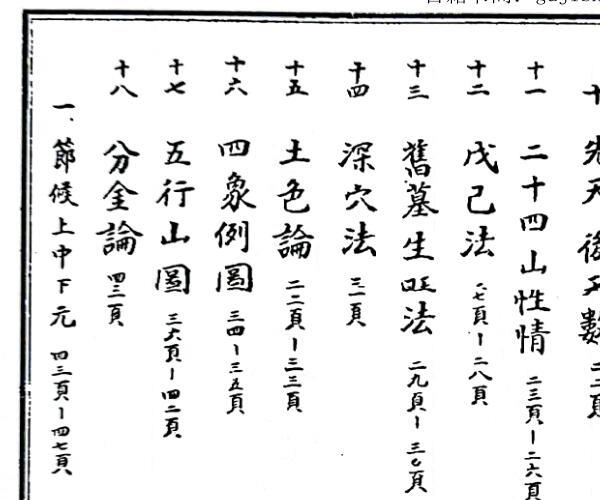 十 先天後天數 二二頁
十一 二十四山性情 二三頁-二六頁
十二 戊己法 二七頁-二八頁
十三 舊墓生旺法 二九頁-三〇頁
十四 深穴法 三一頁
十五 土色論 三二頁-三三頁
十六 四象例圖 三四-三五頁
十七 五行山圖 三六頁-四二頁
十八 分金論 四三頁
一、節候上中下元 四三頁-四七頁